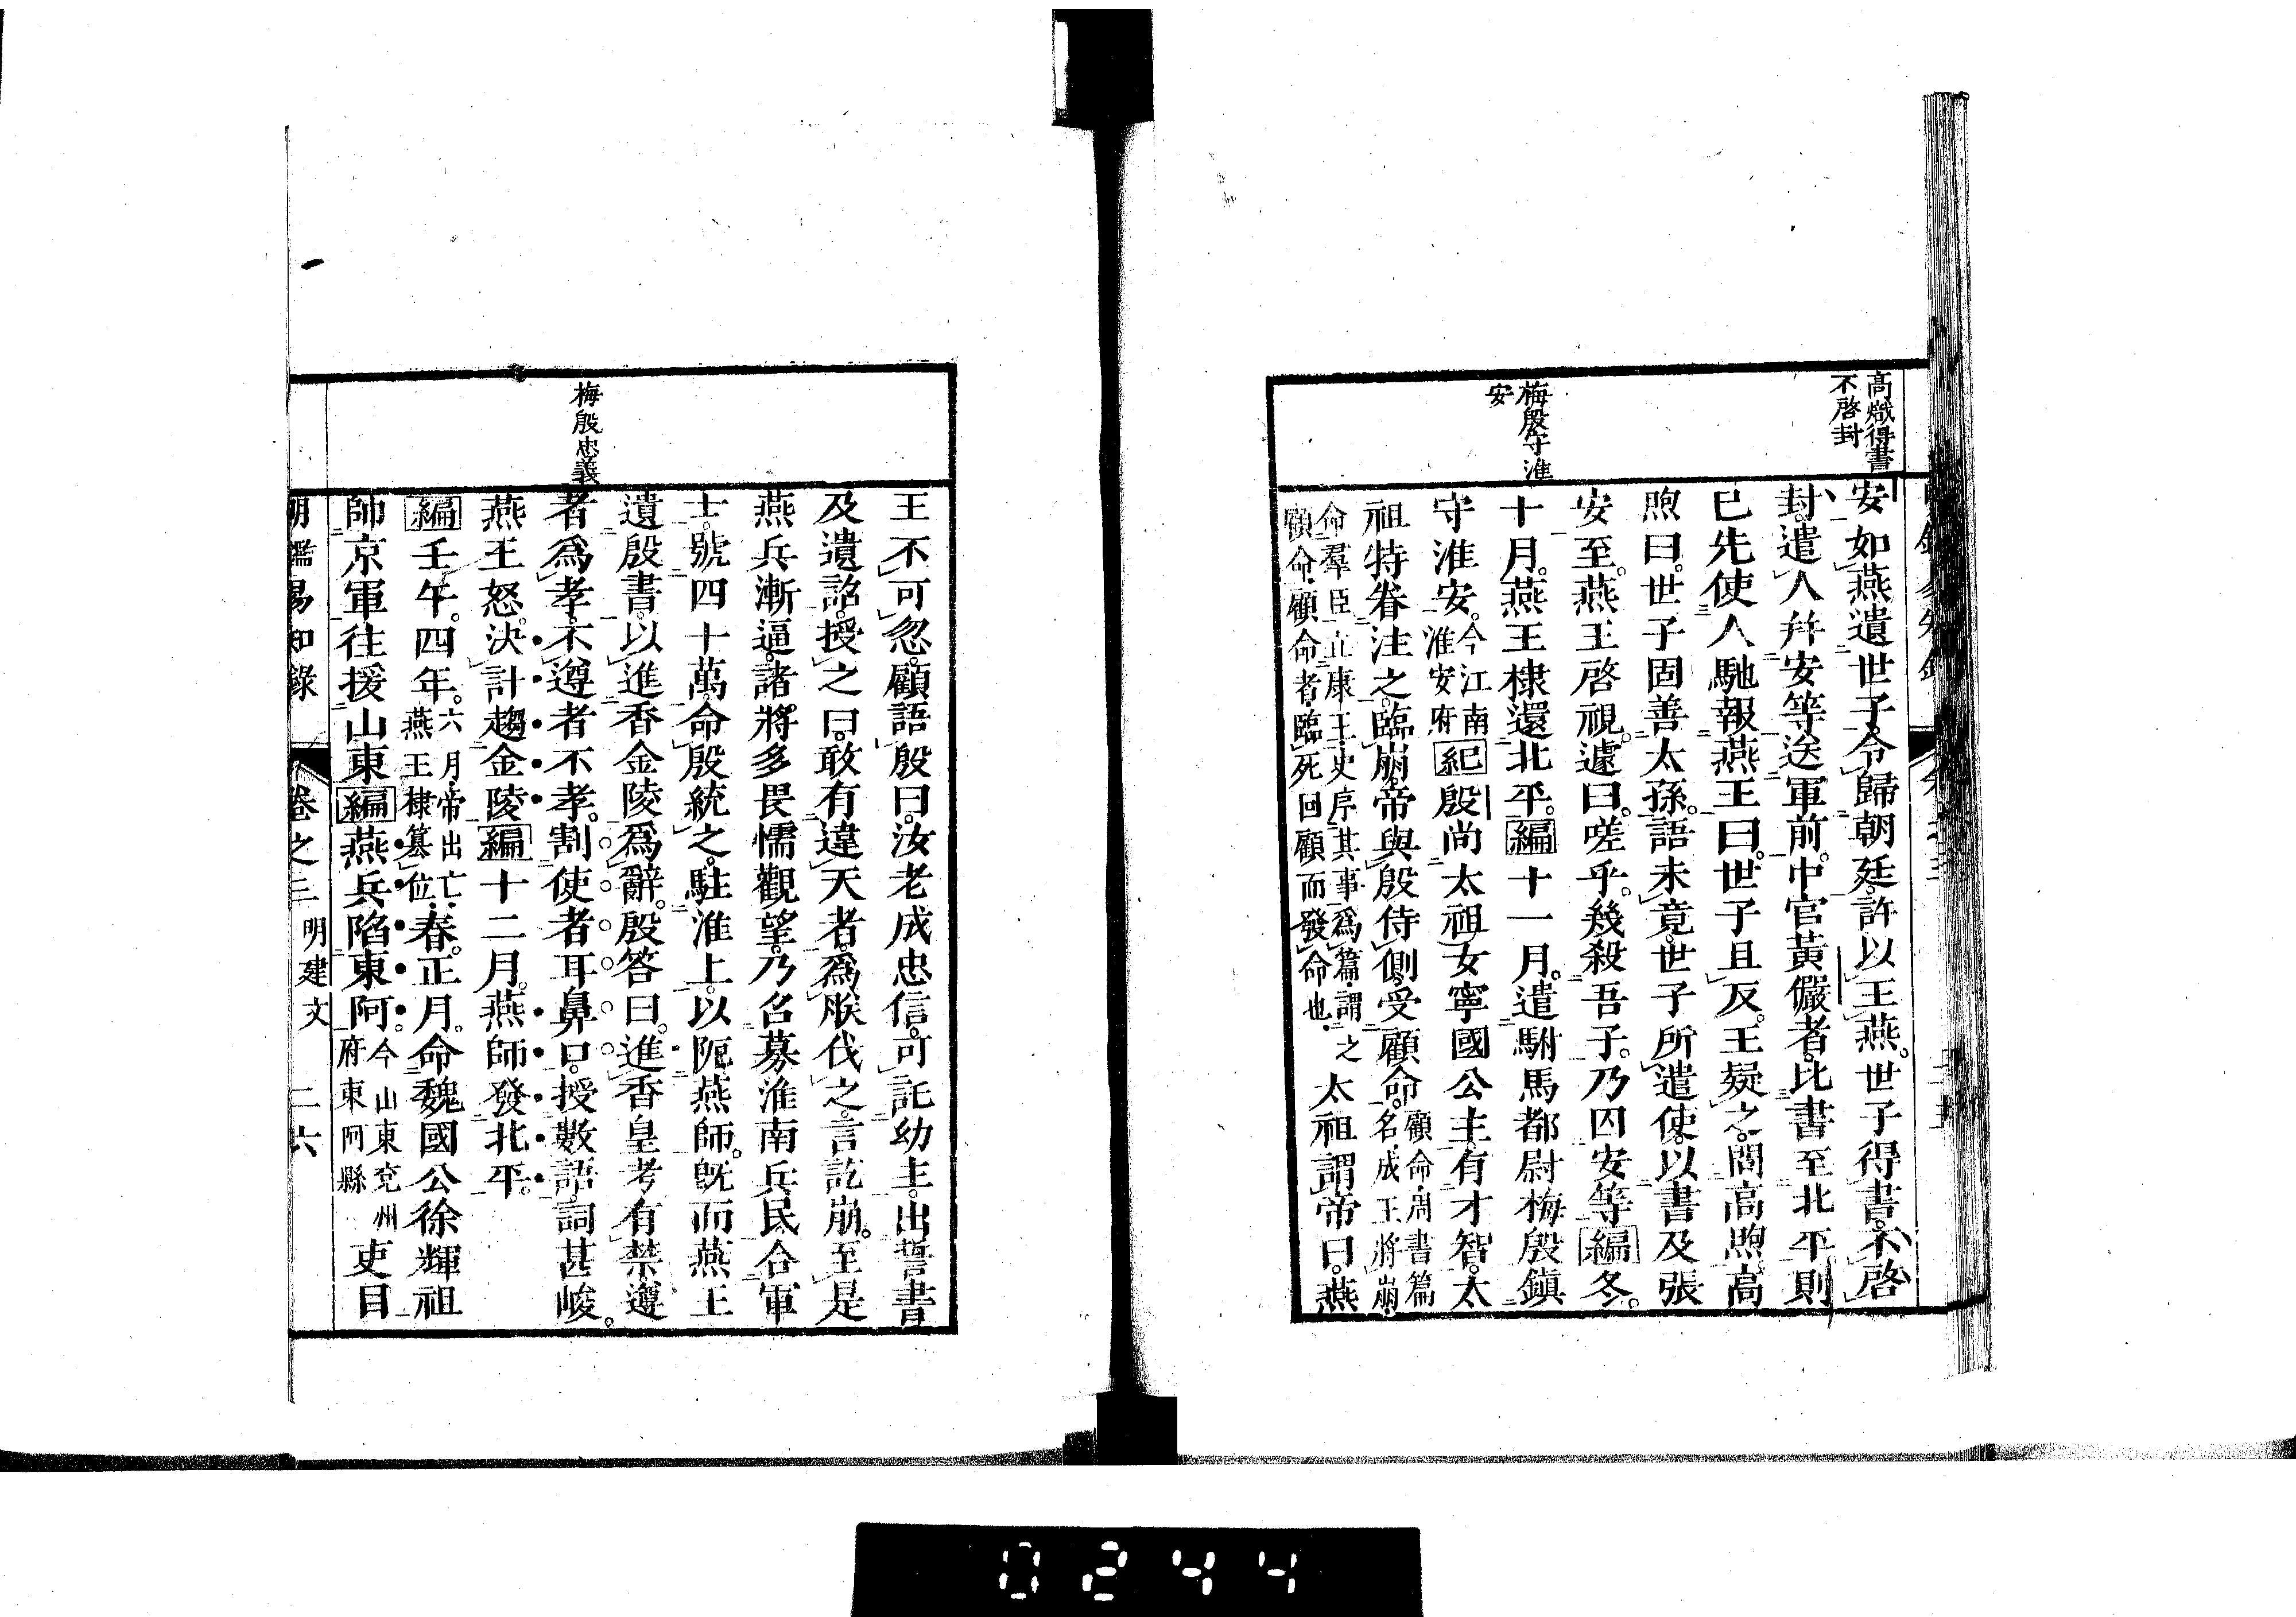 高熾得書
不啓封
安如燕遺世子令歸朝廷許以王燕世子得書不啓
封遣人幷安等送軍前中官黃儼者比書至北平則
已先使人馳報燕王曰世子且反王疑之問高煦高
煦曰世子固善太孫語未竟世子所遣使以書及張
安至燕王啓視遽曰嗟乎幾殺吾子乃囚安等編冬
梅殷守淮
安
十月燕王棣還北平編十一月遣駙馬都尉梅殷鎮
守淮安今江南淮安府紀殷尚太祖女寧國公主有才智太
祖特眷注之臨崩帝與殷侍側受顧命顧命周書篇名成王將崩
命羣臣立康王史序其事爲篇謂之顧命顧命者臨死回顧而發命也太祖謂帝曰燕
王不可忽顧語殷曰汝老成忠信可託幼主出誓書
及遺詔授之曰敢有違天者爲朕伐之言訖崩至是
燕兵漸逼諸將多畏懦觀望乃召募淮南兵民合軍
士號四十萬命殷統之駐淮上以阨燕師旣而燕王
遺殷書以進香金陵爲辭殷答曰進香皇考有禁遵
梅殷忠義
者爲孝不遵者不孝割使者耳鼻口授數語詞甚峻
燕王怒決計趨金陵編十二月燕師發北平
編壬午四年六月帝出亡燕王棣篡位春正月命魏國公徐輝祖
帥京軍往援山東編燕兵陷東阿今山東兗州府東阿縣吏目
明鑑易知錄
卷之三 明建文 二六